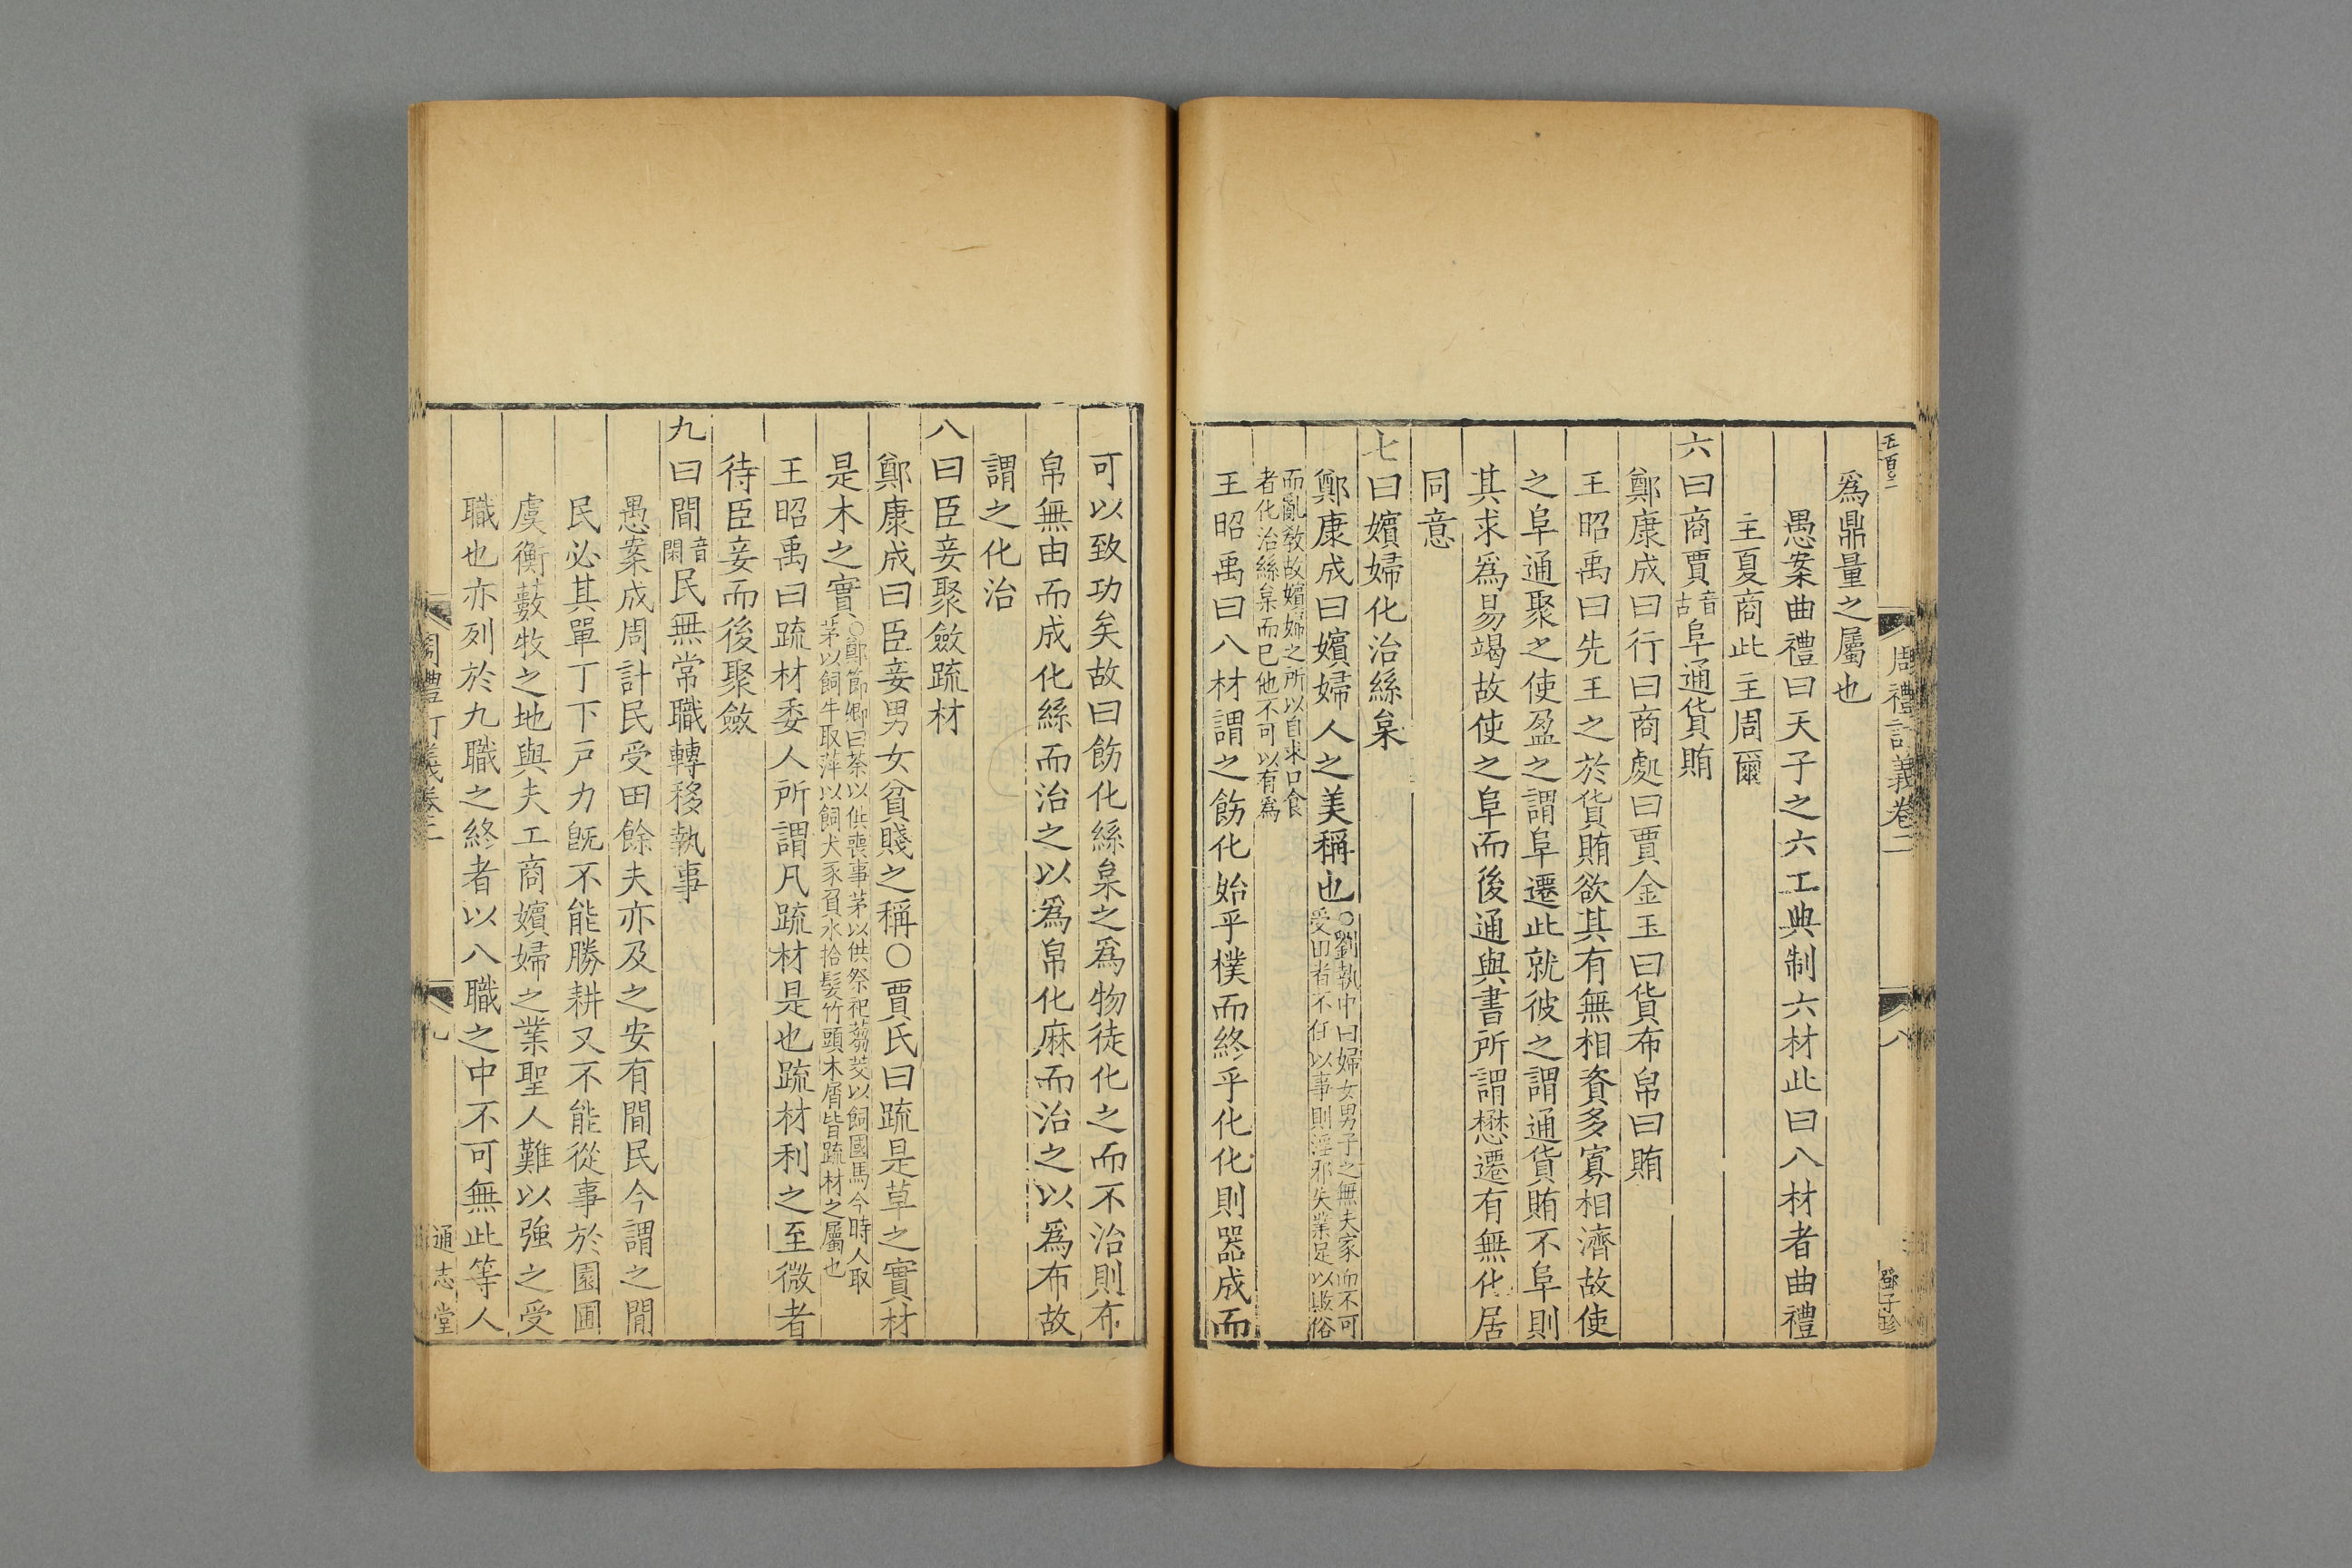 周禮訂義卷二
八
鄧子珍
爲鼎量之屬也
愚案曲禮曰天子之六工典制六材此曰八材者曲禮
主夏商此主周爾
六曰商賈音古阜通貨賄
鄭康成曰行曰商處曰賈金玉曰貨布帛曰賄
王昭禹曰先王之於貨賄欲其有無相資多寡相濟故使
之阜通聚之使盈之謂阜遷此就彼之謂通貨賄不阜則
其求爲易竭故使之阜而後通與書所謂懋遷有無化居
同意
七曰嬪婦化治絲枲
鄭康成曰嬪婦人之美稱也○劉執中曰婦女男子之無夫家而不可
受田者不任以事則淫邪失業足以敗俗
而亂敎故嬪婦之所以自求口食
者化治絲枲而已他不可以有爲
王昭禹曰八材謂之飭化始乎樸而終乎化化則器成而
可以致功矣故曰飭化絲枲之爲物徒化之而不治則布
帛無由而成化絲而治之以爲帛化麻而治之以爲布故
謂之化治
八曰臣妾聚斂疏材
鄭康成曰臣妾男女貧賤之稱○賈氏曰疏是草之實材
是木之實○鄭節卿曰荼以供喪事茅以供祭祀芻茭以飼國馬今時人取
茅以飼牛取萍以飼犬豕負水拾髮竹頭木屑皆疏材之屬也
王昭禹曰疏材委人所謂凡疏材是也疏材利之至微者
待臣妾而後聚斂
九曰閒音閑民無常職轉移執事
愚案成周計民受田餘夫亦及之安有閒民今謂之閒
民必其單丁下戸力旣不能勝耕又不能從事於園圃
虞衡藪牧之地與夫工商嬪婦之業聖人難以強之受
職也亦列於九職之終者以八職之中不可無此等人
周禮訂義卷二
九
通志堂